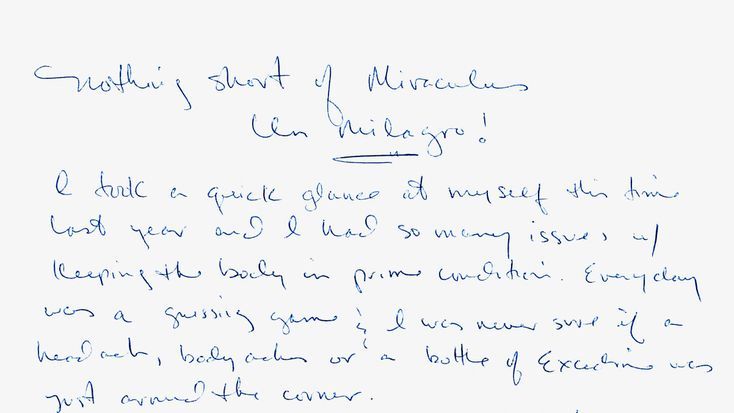 Nothing short of Miraculus
Un Milagro!
I took a quick glance at myself this time
last year and I had so many issues w/
keeping the body in prime condition. Everyday
was a guessing game & I was never sure if a
headach, bodyaches or a bottle of Excedrine was
just around the corner.